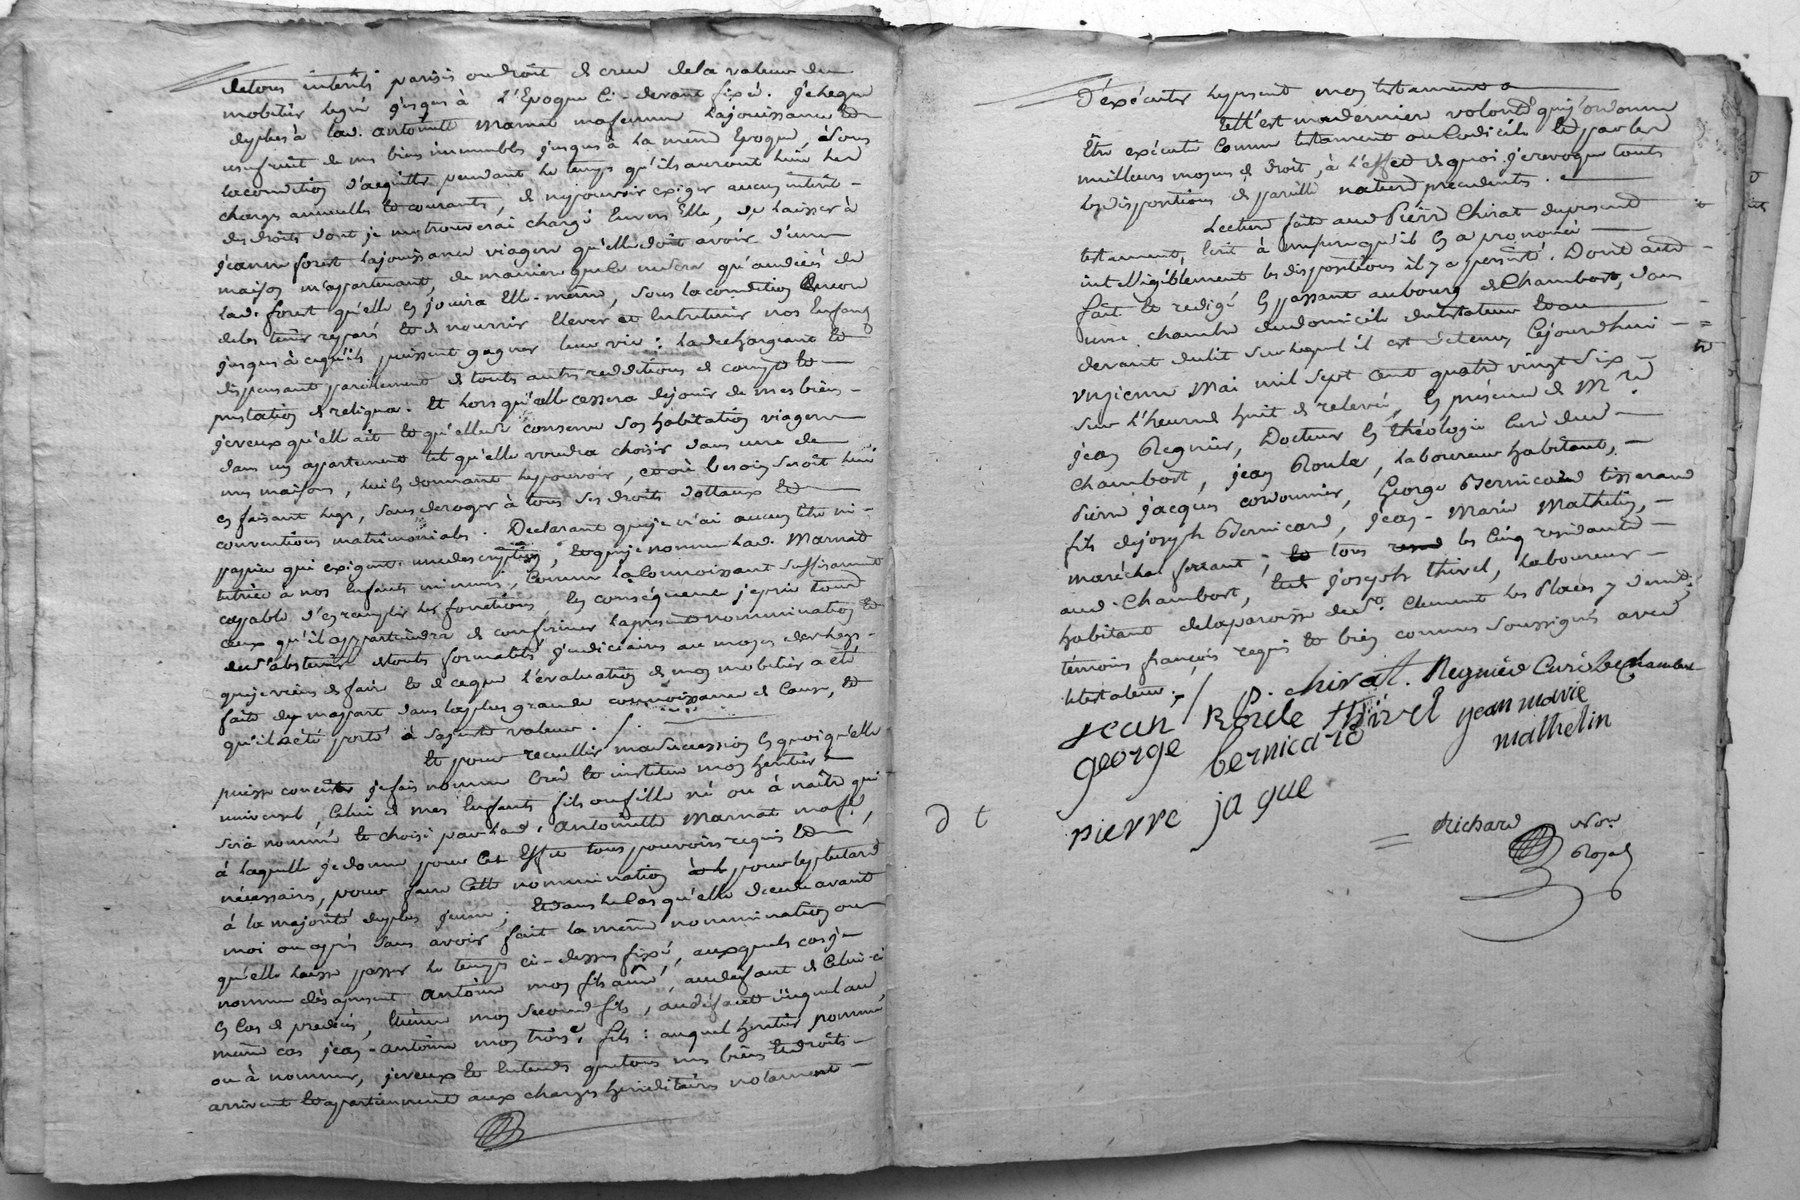 de tous interêts parisis ou droit de crue de la valeur du
mobilier legué jusques à l'Epoque ci-devant fixé. Je legue
de plus à lad. antoinette Marnat ma femme la jouissance et
usufruit de mes biens immeubles jusques à la même Epoque, à Sous
la condition d'acquitter pendant le temps qu'ils auront lieu les
charges annuelles et courantes, de ne pouvoir exiger aucun interêt
des droits dont je me trouverai chargé Envers Elle, de laisser à
jeanne forest la jouissance viagere qu'elle doit avoir d'une
maison m'appartenant, de maniere que le ne sera qu'au decès de
lad. forest qu'elle En jouira Elle-même, Sous la condition Encore
de les tenir reparé et de nourrir Elever et Entretenir nos Enfants
jusques à ce qu'ils puissent gagner leur vie : la dechargeant et
dispensant pareillement de toute autre reddition de compte et
prestation de reliqua. Et lorsqu'elle cessera de jouir de mes biens
je veux qu'elle ait et qu'elle conserve Son habitation viagere
dans un appartement tel qu'elle voudra choisir dans une de
mes maisons, lui En donnant le pouvoir, et où besoin seroit lui
en faisant legs, sans deroger à tous ses droits dottaux et
conventions matrimoniales. Declarant que je n'ai aucun titre ni
papier qui exigent une description, et que je nomme lad. Marnat
tutrice à nos Enfants mineurs, Comme la Connoissant Suffisamment
capable d'en remplir les fonctions, En consequence je prie tous
ceux qu'il appartiendra de confirmer la presente nomination et
de s'abstenir de toute formalité judiciaire au moyen des legs
que je viens de faire et de ce que l'évaluation de mon mobilier a été
faite de ma part dans la plus grande connoissance de Cause, et
qu'il a été porté à sa juste valeur.
Et pour recueillir ma Succession En quoi qu'elle
puisse consister je fais nomme Créé et institue mon heritier
universel, Celui de mes Enfants fils ou fille né ou à naître qui
sera nommé et choisi par lad. Antoinette Marnat ma fe.,
à laquelle je donne pour Cet Effet tous pouvoirs requis et
nécessaires, pour faire Cette nomination pour le plus tard
à la majorité du plus jeune ; Et dans le Cas qu'elle decede avant
moi ou après sans avoir fait la même nomination ou
qu'elle laisse passer le temps ci-dessus fixé, auxquels cas je
nomme dès à present Antoine mon fils ainé, au défaut de Celui-ci
En Cas de predecès, Etienne mon Second fils, au défaut duquel au
même cas jean-antoine mon trois.e fils : auquel heritier nommé
ou à nommer, je veux et Entends que tous mes biens Et droits
arrivent et appartiennent aux charges hereditaires notamment
d'exécuter le present mon testament
telle est ma derniere volonté que j'ordonne
être exécuté Comme testament ou Codicile Et par les
meilleurs moyens de droit, à l'effet de quoi je revoque toutes
les dispositions de pareille nature precedentes.
Lecture faite aud Pierre Chirat du present
testament, Ecrit à mesure qu'il En a prononcé
intelligiblement les dispositions il y a persisté. Dont acte
fait et redigé En passant au bourg de Chambost, dans
une chambre du domicile du testateur Et au
devant du lit Sur lequel il est detenu, Cejourdhui
vingieme Mai mil Sept Cent quatre vingt Six
Sur l'heure de huit de relevée, En présence de M.re
jean Regnier, Docteur En théologie Curé dud.
Chambost, jean Roule, laboureur habitant,
Pierre jacques cordonnier, George Bernicard tisserand
fils de joseph Bernicard, jean-Marie Mathelin,
maréchal ferrant ; tous les Cinq residants
aud. Chambost, Et de joseph thivel, laboureur
habitant de la paroisse de St. Clement les Places y demt.
témoins françois requis et bien connus soussignés avec
le testateur.
P. chirat. Regnier Curé de chambost
jean Roule thivel jean marie
mathelin
george bernicard
pierre jaque
Richard Nore
Royal